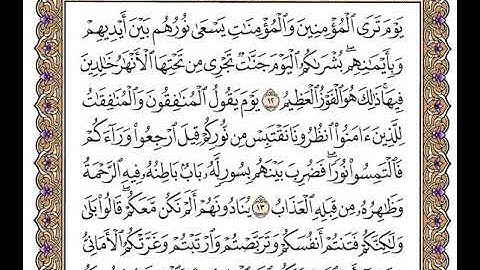 يَوْمَ تَرَى ٱلْمُؤْمِنِينَ وَٱلْمُؤْمِنَٰتِ يَسْعَىٰ نُورُهُم بَيْنَ أَيْدِيهِمْ
وَبِأَيْمَٰنِهِم بُشْرَىٰكُمُ ٱلْيَوْمَ جَنَّٰتٌ تَجْرِى مِن تَحْتِهَا ٱلْأَنْهَٰرُ خَٰلِدِينَ
فِيهَا ۚ ذَٰلِكَ هُوَ ٱلْفَوْزُ ٱلْعَظِيمُ ١٢ يَوْمَ يَقُولُ ٱلْمُنَٰفِقُونَ وَٱلْمُنَٰفِقَٰتُ
لِلَّذِينَ ءَامَنُوا۟ ٱنظُرُونَا نَقْتَبِسْ مِن نُّورِكُمْ قِيلَ ٱرْجِعُوا۟ وَرَآءَكُمْ
فَٱلْتَمِسُوا۟ نُورًا ۖ فَضُرِبَ بَيْنَهُم بِسُورٍ لَّهُۥ بَابٌۢ بَاطِنُهُۥ فِيهِ ٱلرَّحْمَةُ
وَظَٰهِرُهُۥ مِن قِبَلِهِ ٱلْعَذَابُ ١٣ يُنَادُونَهُمْ أَلَمْ نَكُن مَّعَكُمْ ۖ قَالُوا۟ بَلَىٰ
وَلَٰكِنَّكُمْ فَتَنتُمْ أَنفُسَكُمْ وَتَرَبَّصْتُمْ وَٱرْتَبْتُمْ وَغَرَّتْكُمُ ٱلْأَمَانِىُّ